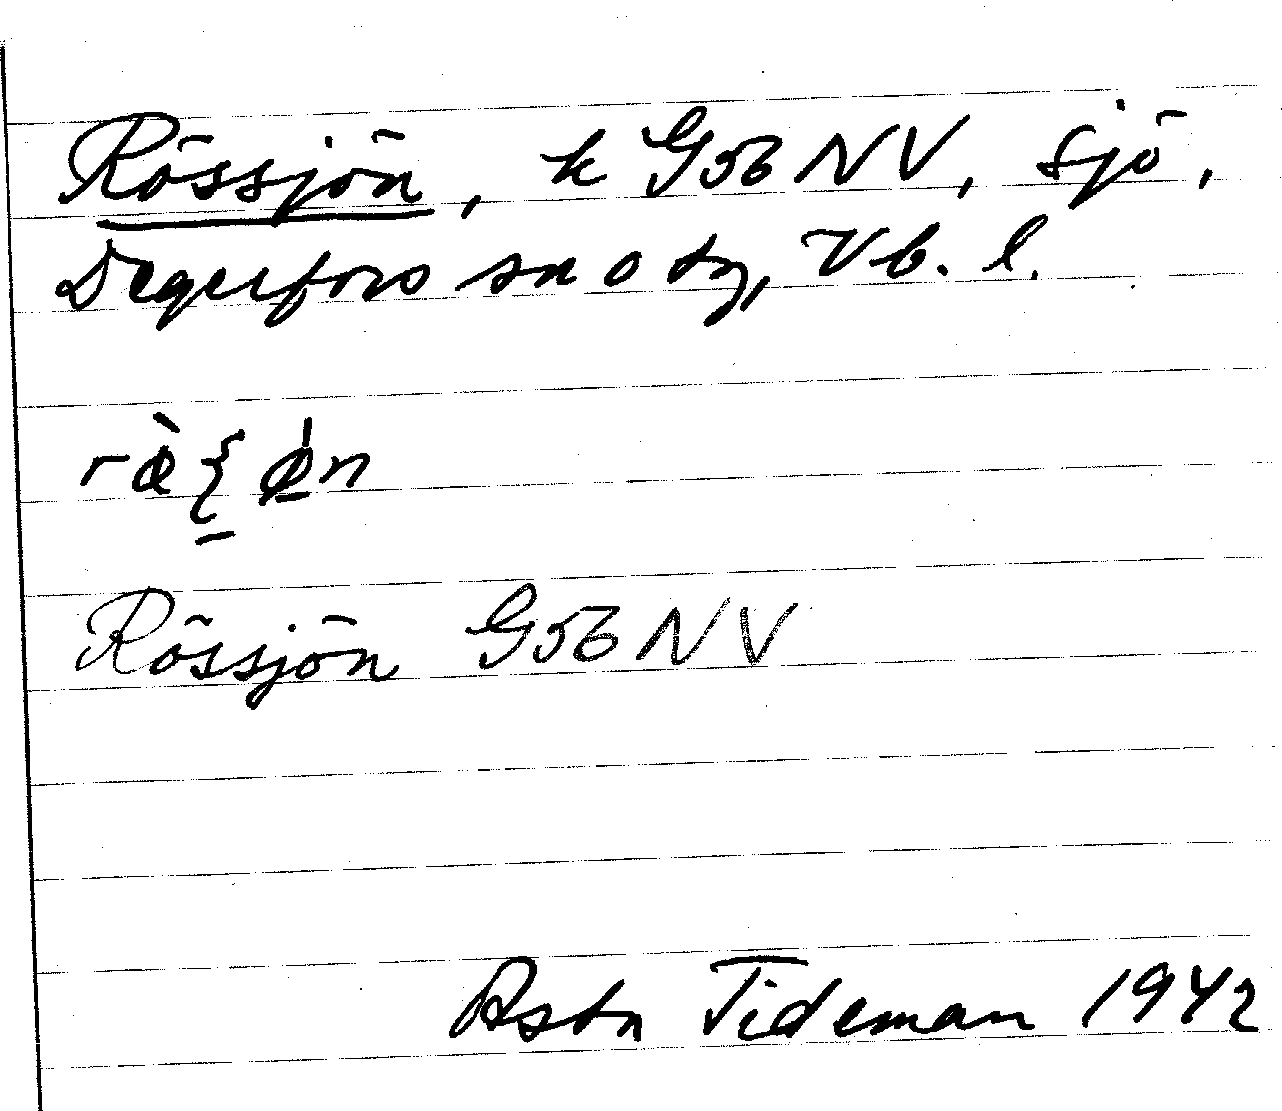 Rössjön, k G56 NV, sjö,
Degerfors sn o tg, Vb. l.
Rössjön G56 NV
Astn Tideman 1942